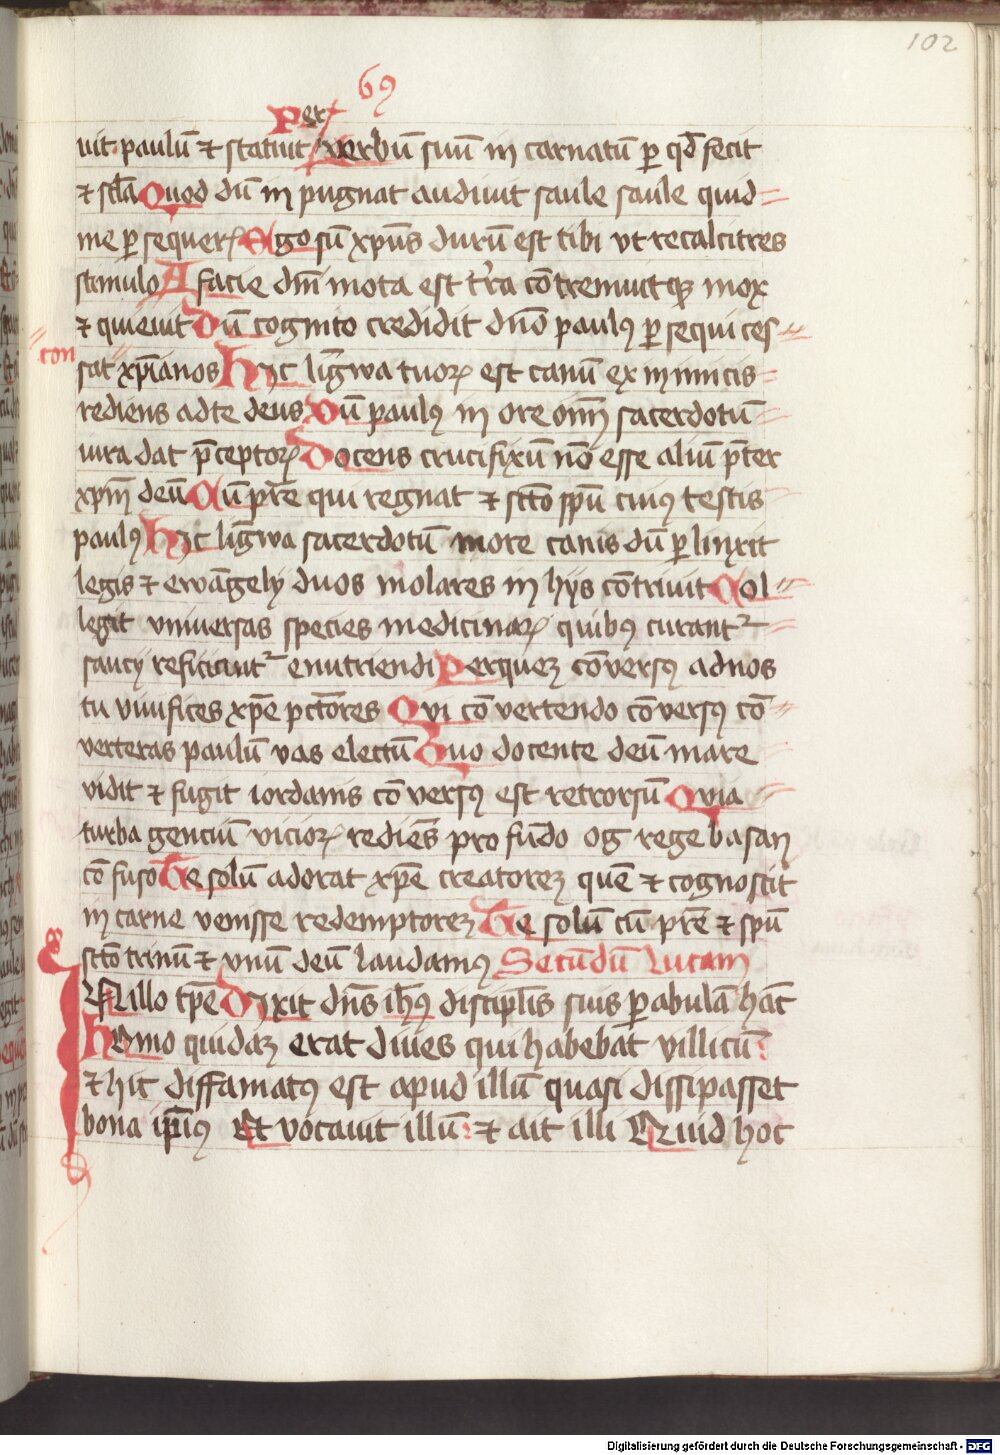 102
69
Per
uit paulū ⁊ statuit verbū suū in carnatū ꝑ qd̄ fecit
⁊ scl̄a Quod dū in pugnat audiuit saule saule quid
me ꝑ sequerꝭ Ego sū xpūs durū est tibi vt recalcitres
stimulo A facie dn̄i mota est tr̄ra cōtremuitqꝫ mox
⁊ quieuit Dū cognito credidit dn̄o paulꝰ ꝑ sequi ces
sat xp̄ianos Hec ligwa tuoꝝ est canū ex inimicis
ton
rediens ad te deus Dū paulꝰ in ore om̄i sacerdotū
iura dat p̄ceptoꝝ Docens crucifixū nō esse aliū p̄ter
xpm̄ deū Cū pr̄e qui regnat ⁊ sct̄o spū cuiꝰ testis
paulꝰ Hec ligwa sacerdotū more canis dū ꝑ linxit
legis ⁊ ewāgelij duos molares in hijs cōtriuit Col
legit vniuersas species medicinaꝝ quibꝰ curant᷑
saucij reficiunt᷑ enutriendi Per quez cōuersꝰ ad nos
tu viuifices xp̄e pctōres Qui cō vertendo cōuersꝰ cō
verteras paulū vas electū Quo docente deū mare
vidit ⁊ fugit iordanis cō versꝰ est retrorsū Quia
turba genciū vicioꝝ rediēs pro fūdo og rege basan
cō fuso Te solū adorat xp̄e creatorez quē ⁊ cognoscit
in carne venisse redemptorez Te solū cū pr̄e ⁊ spū
sct̄o trinū ⁊ vnū deū laudamꝰ Secūdū Lucam
IN illo tp̄e Dixit dn̄s ih̄ꝰ discipl̄is suis ꝑabulā hāc
Homo quidaz erat diues qui habebat villicū
⁊ hic diffamatꝰ est apud illū quasi dissipasset
bona ip̄iꝰ Et vocauit illū ⁊ ait illi Quid hoc
Digitalisierung gefördert durch die Deutsche Forschungsgemeinschaft - DFG